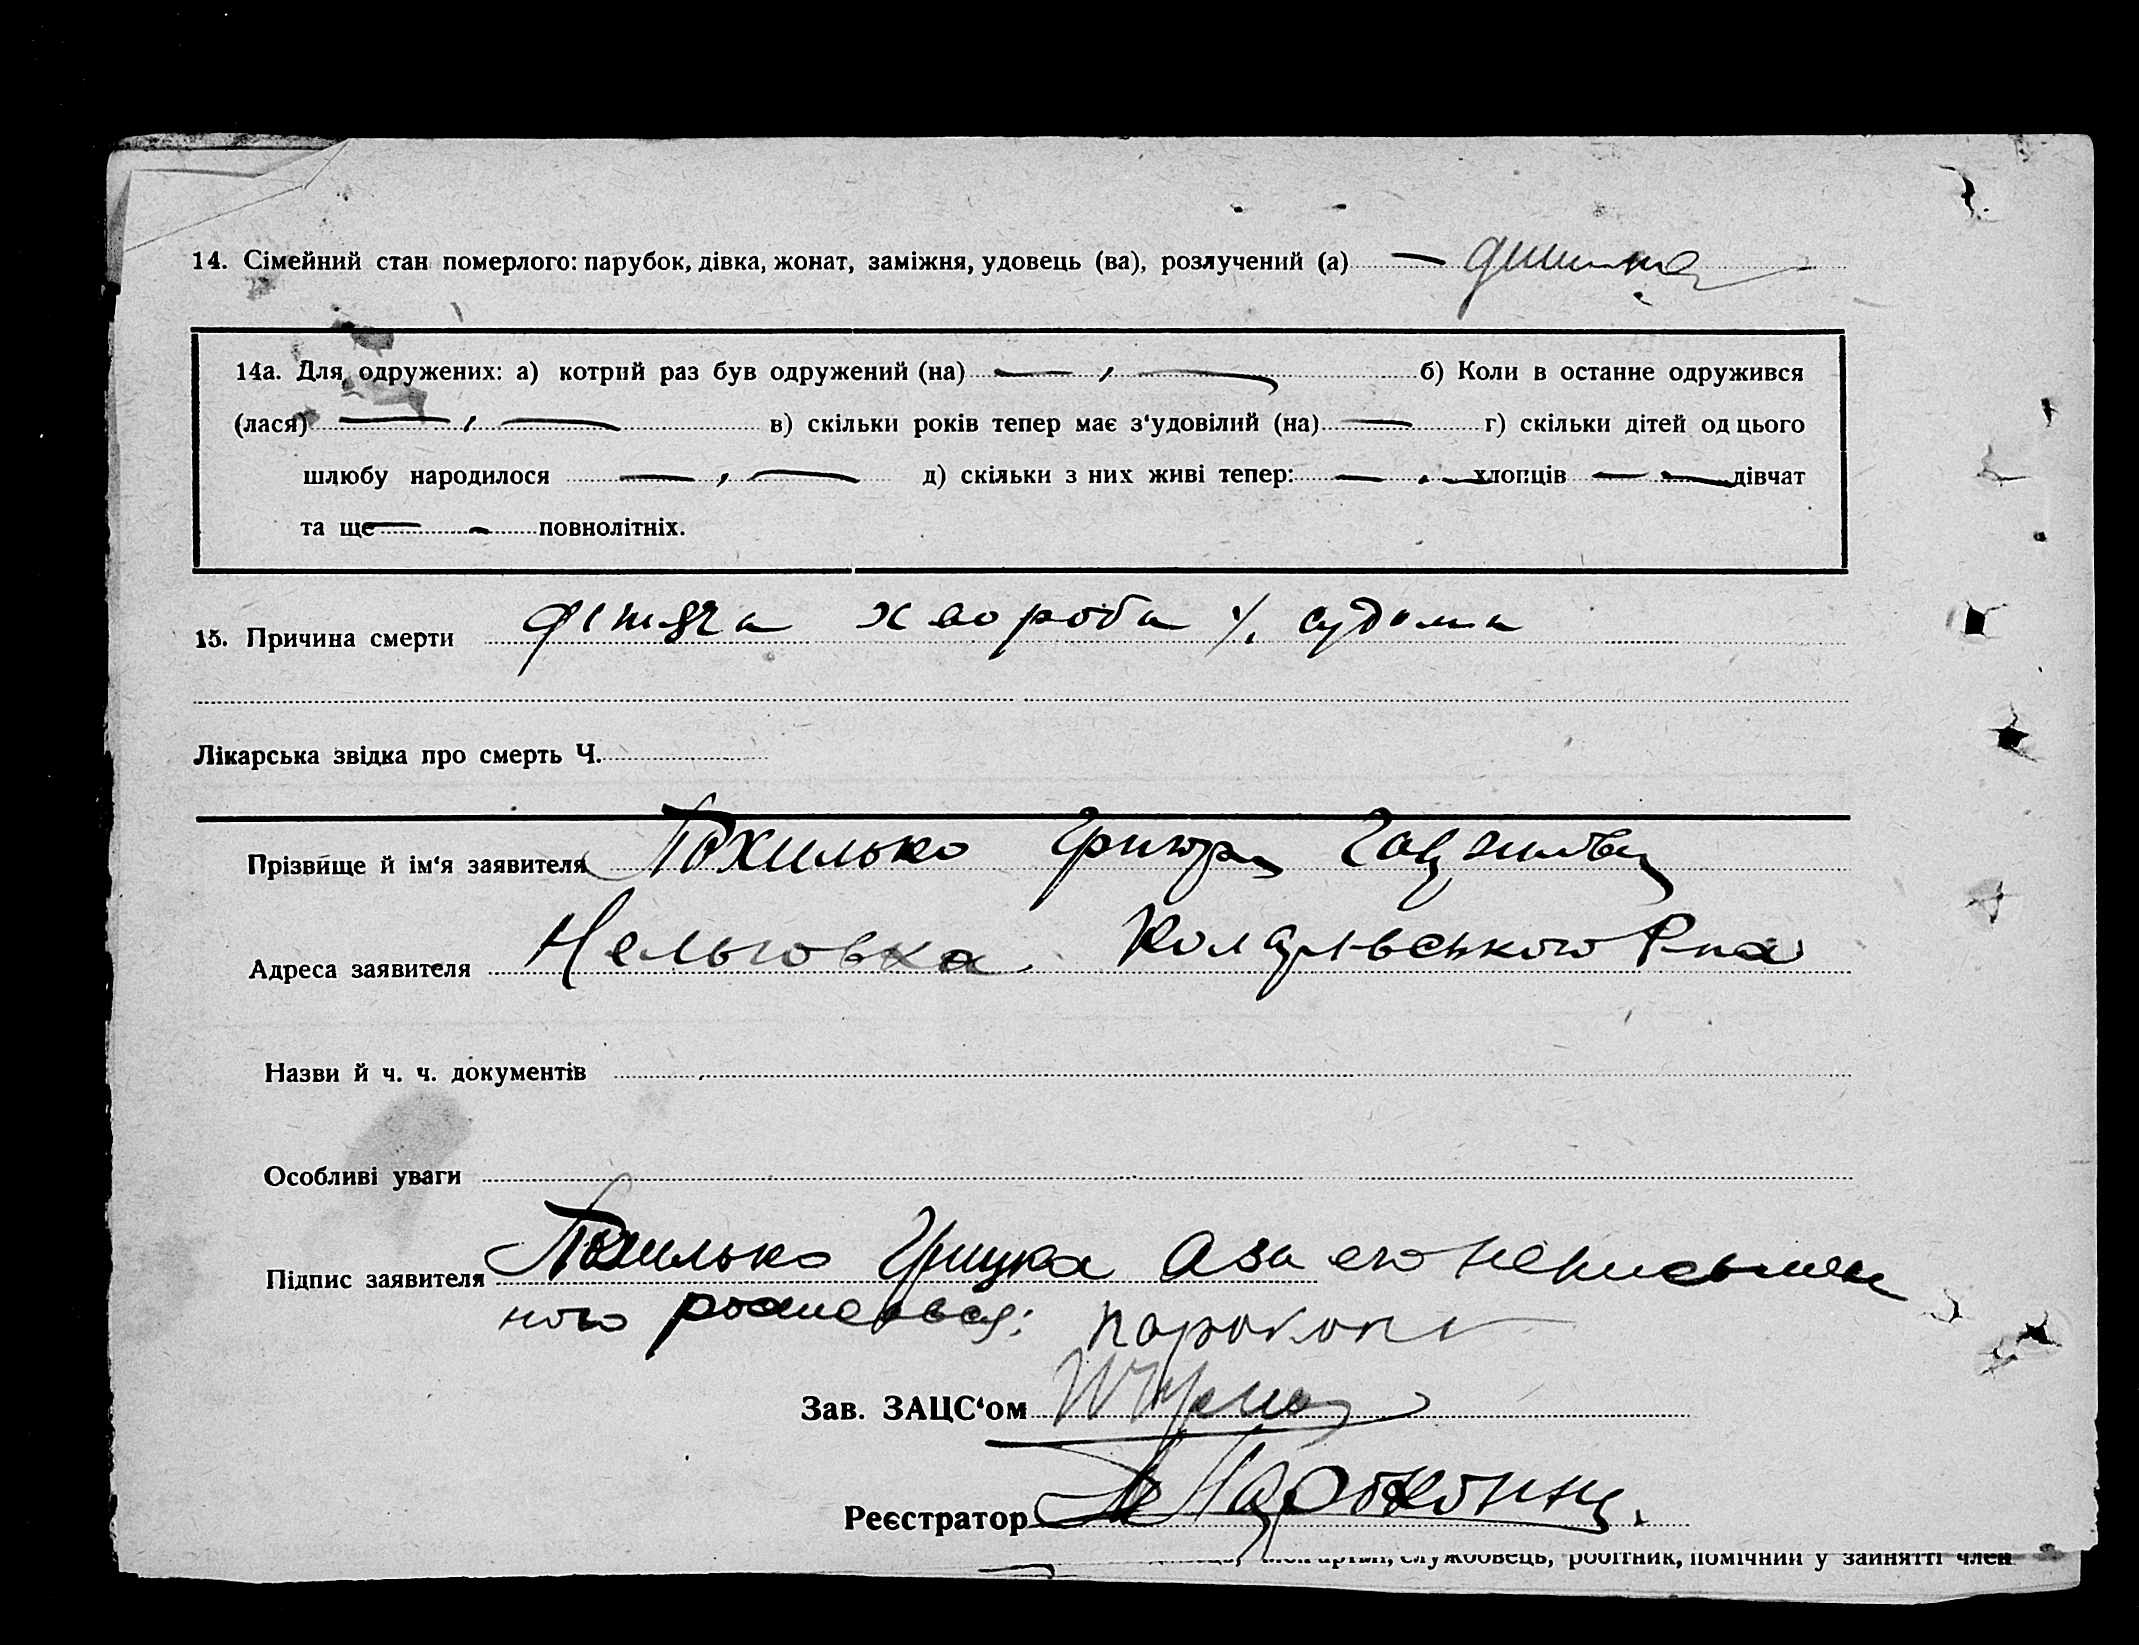 14. Сімейний стан померлого: парубок, дівка, жонат, заміжня, удовець (ва), розлучений (а) — дитина
14а. Для одружених: а) котрий раз був одружений (на) — , — б) Коли в останне одружився
(лася) — , — в) скільки років тепер має з‘удовілий (на) — г) скільки дітей од цього
шлюбу народилося — , — д) скільки з них живі тепер: — . — хлопців — . — дівчат
та ще — - повнолітніх.
15. Причина смерти дітяча хвороба %. судома
Лікарська звідка про смерть Ч.
Прізвище й ім‘я заявителя Похилько
Адреса заявителя Нельговка
Назви й ч. ч. документів
Особливі уваги
Підпис заявителя Похилько Грицка а за его неписьмен
ного
Зав. ЗАЦС‘ом
Реєстратор
службовець, робітник, помічний у занятті член